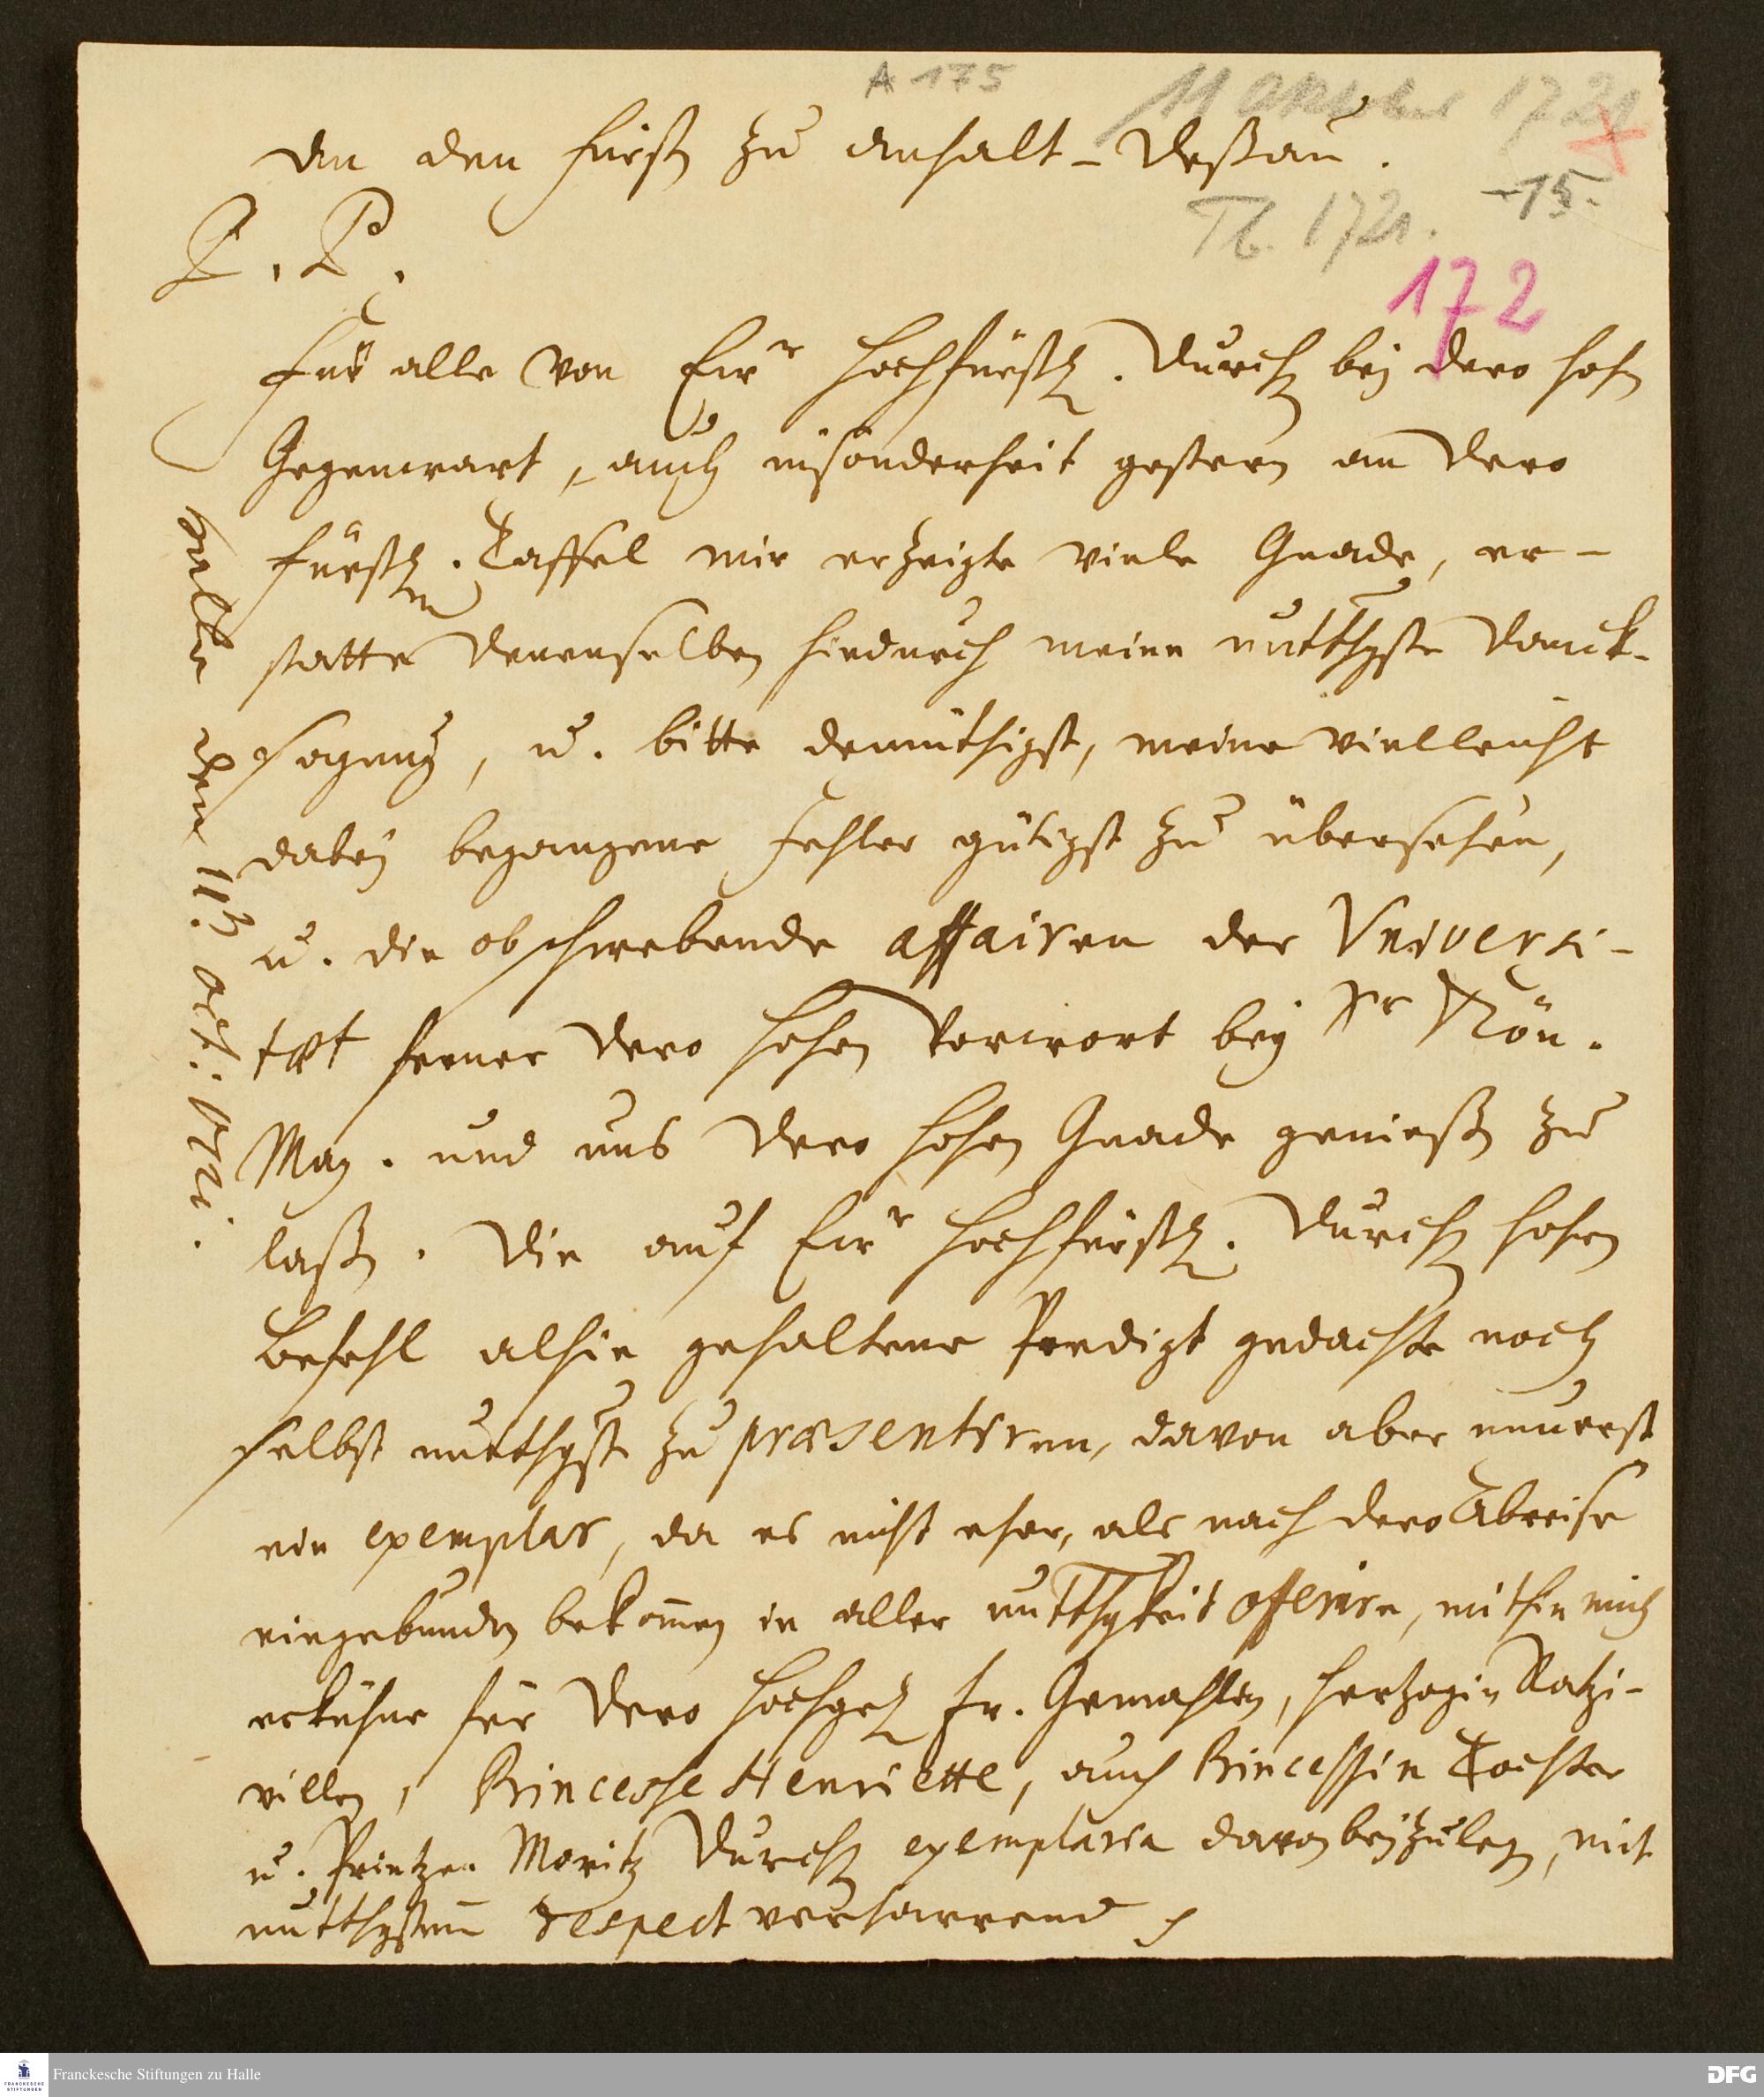 A 175
11 Oktober 1721
An den Fürsten zu Anhalt-Deßau.
-15.
Tb. 1721.
P. P.
172
Für alle von Ewr Hochfürstl. Durchl. bey dero hohen
Gegenwart, auch insonderheit gestern an Dero
fürstl. Taffel mir erzeigte viele Gnade, er-
statte Denenselben hiedurch meinen untthgsten Danck-
sagung, u. bitte demüthigst, meine vielleicht
dabey begangene Fehler gütigst zu übersehen,
u. die obschwebende affairen der Universi-
tæt ferner Dero hohen Vorwort bey Sr Kön.
May. und uns Dero hohen Gnade genießen zu
laßen. Die auf Ewr Hochfürstl. Durchl. hohen
Befehl alhie gehaltene Predigt gedachte noch
selbst untthgst zu præsentiren, davon aber nunerst
ein exemplar, da es nicht eher, als nach dero Abreise
eingebunden bekommen in aller untthgkeit offerire, mithin mich
erkühne für Dero Hochgel. Fr. Gemahlin, Hertzogin Ratzi-
villen, Princesse Henriette, auch Princessin Tochter
u. Printzen Moritz Durchl. exemplaria davon beyzulegen, mit
untthgstem respect verharrend
Halle den 11ten Oct: 1721.
Franckesche Stiftungen zu Halle
FRANCKESCHE
STIFTUNGEN
DFG